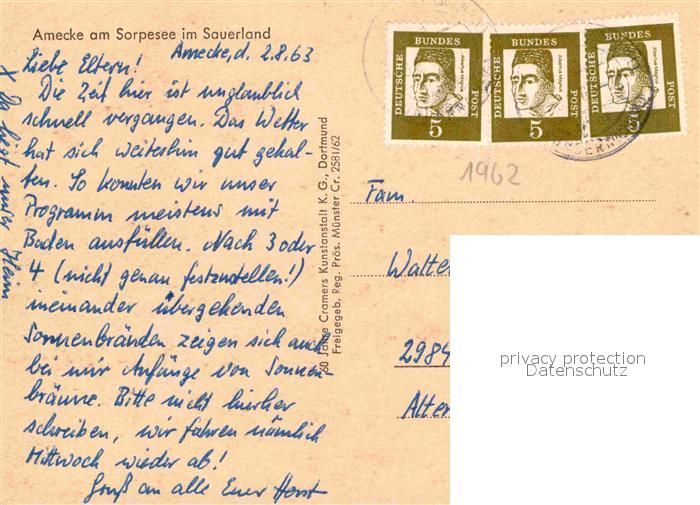 Amecke am Sorpesee im Sauerland
Amecke, d. 2.8.63
Liebe Eltern!
Die Zeit hier ist unglaublich
schnell vergangen. Das Wetter
hat sich weiterhin gut gehal-
ten. So konnten wir unser
Programm meistens mit
Baden ausfüllen. Nach 3 oder
4 (nicht genau festzustellen!)
ineinander übergehenden
Sonnenbränden zeigen sich auch
bei mir Anfänge von Sonnen-
bräune. Bitte nicht hierher
schreiben, wir fahren nämlich
Mittwoch wieder ab!
Gruß an alle Euer Horst
x Da liegt unser Heim
60 Jahre Cramers Kunstanstalt K.G., Dortmund
Freigegeb. Reg. Präs. Münster Cr. 2581/62
DEUTSCHE BUNDES POST
5
DEUTSCHE BUNDES POST
5
DEUTSCHE BUNDES POST
1962
Fam.
Walter
2984
Alter
privacy protection
Datenschutz